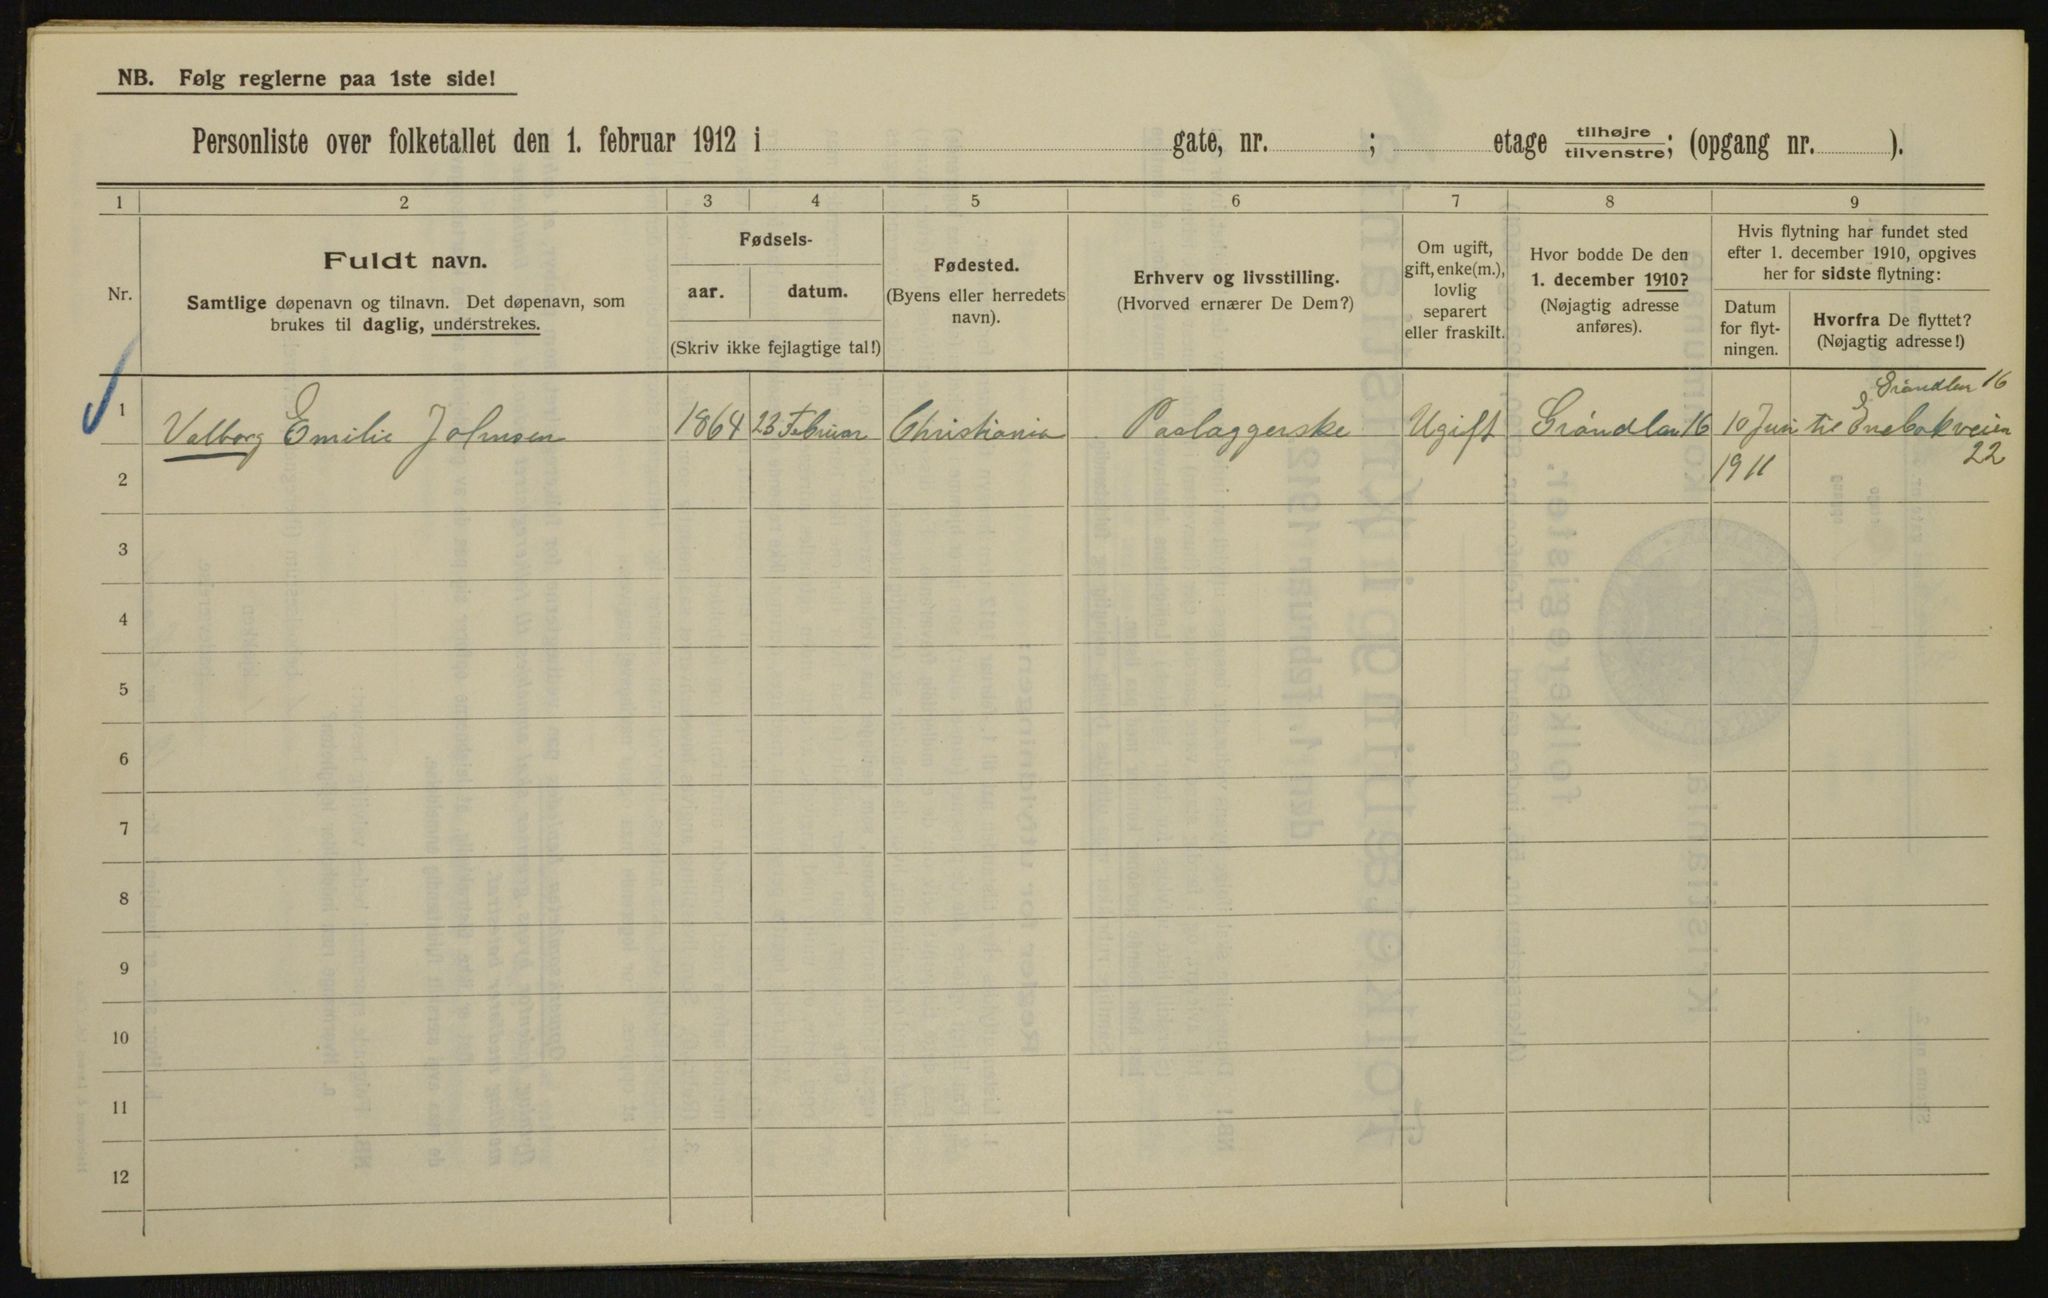 NB. Følg reglerne paa 1ste side!
Personliste over folketallet den 1. februar 1912 i gate, nr. ; etage tilhøjre/tilvenstre; (opgang nr. ).
1 2 3 4 5 6 7 8 9
Nr.
Fuldt navn.
Samtlige døpenavn og tilnavn. Det døpenavn, som
brukes til daglig, understrekes.
Fødsels-
aar. datum.
(Skriv ikke fejlagtige tal!)
Fødested.
(Byens eller herredets
navn).
Erhverv og livsstilling.
(Hvorved ernærer De Dem?)
Om ugift,
gift, enke(m.),
lovlig
separert
eller fraskilt.
Hvor bodde De den
1. december 1910?
(Nøjagtig adresse
anføres).
Hvis flytning har fundet sted
efter 1. december 1910, opgives
her for sidste flytning:
Datum
for flyt-
ningen.
Hvorfra De flyttet?
(Nøjagtig adresse!)
Grøndlan 16
1 Valborg Emilie Johnsen 1864 23 Februar Christiania Paalæggerske Ugift Grøndlan 16 10 Juni til Enebakveien
2 1911 22
3
4
5
6
7
8
9
10
11
12